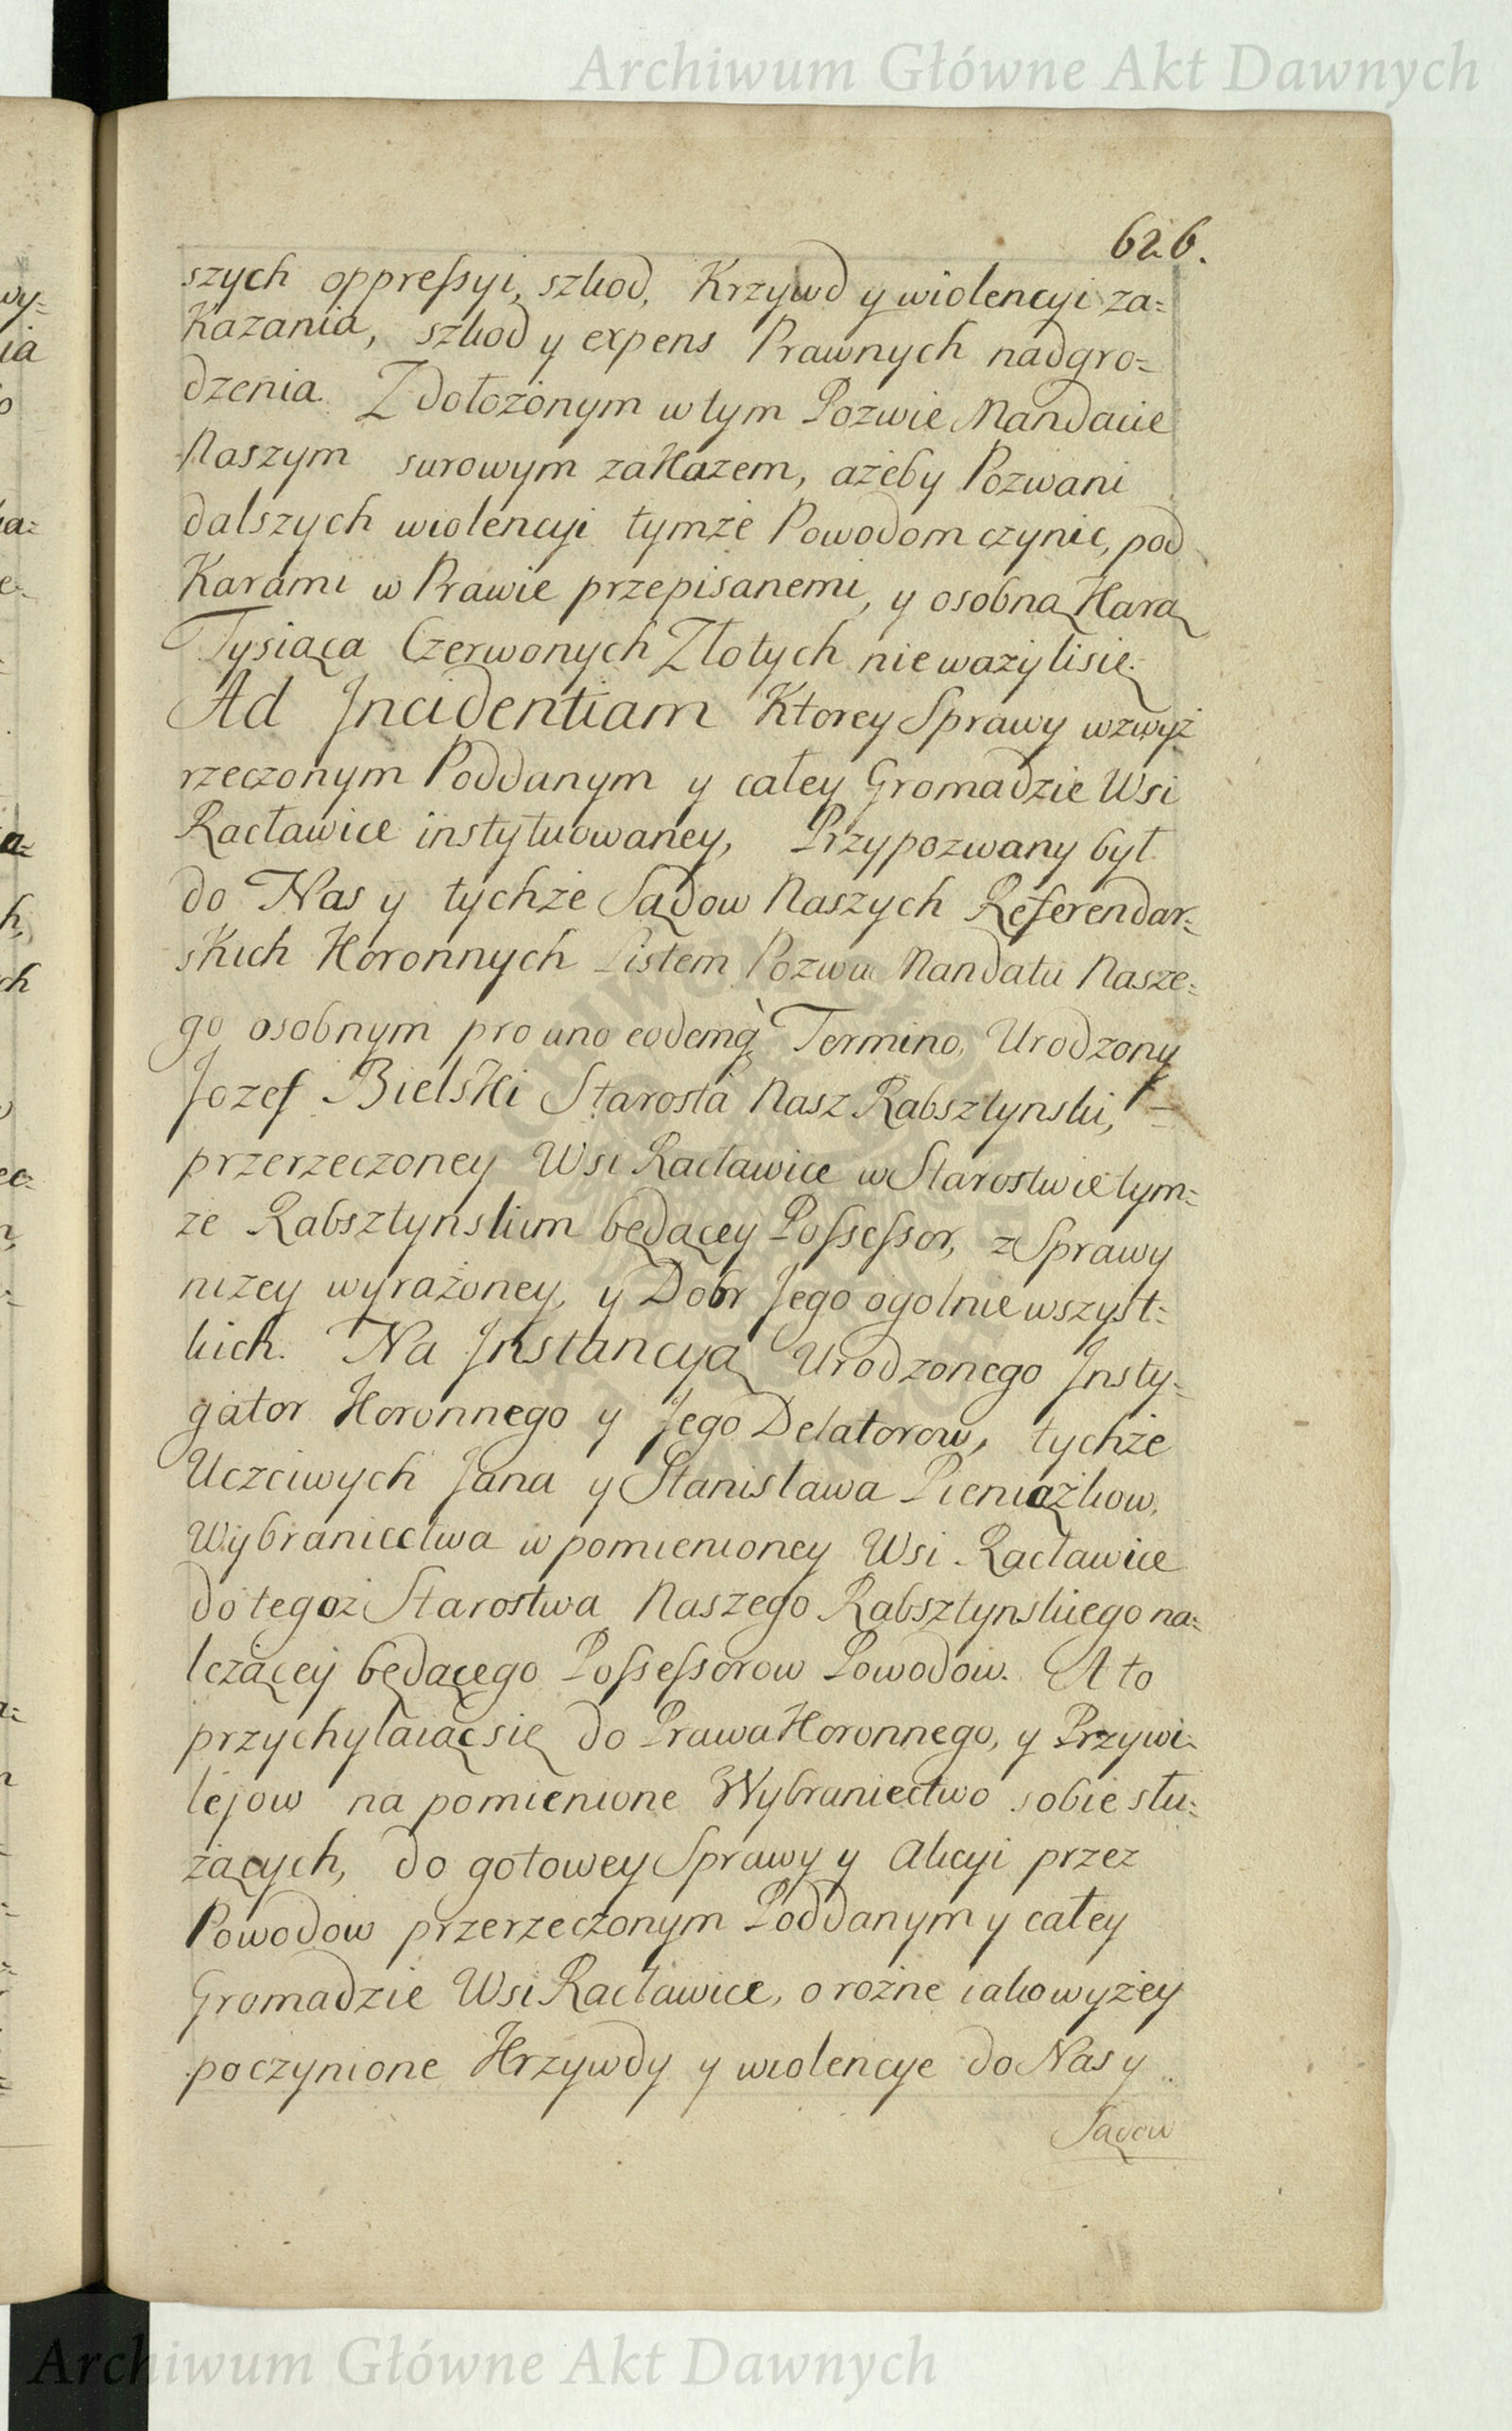 Archiwum Główne Akt Dawnych
626.
szych oppressyi, szkod, Krzywd y wiolencyi za=
Kazania, szkod y expens Prawnych nadgro=
dzenia. Z dołożonym w tym Pozwie Mandacie
Naszym surowym zaKazem, ażeby Pozwani
dalszych wiolencyi tymże Powodom czynic, pod
Karami w Prawie przepisanemi, y osobną Karą
Tysiąca Czerwonych Złotych nieważylisię.
Ad Incidentiam Ktorey Sprawy wzwyż
rzeczonym Poddanym y całey Gromadzie Wsi
Racławice instytuowaney, Przypozwany był
do Nas y tychże Sądow Naszych Referendar=
skich Koronnych Listem Pozwu Mandatu Nasze=
go osobnym pro uno eodemq̀ Termino, Urodzony
Jozef Bielski Starosta Nasz Rabsztynski, =
przerzeczoney Wsi Racławice w Starostwie tym=
że Rabsztynskim będącey Possessor, z Sprawy
niżey wyrażoney, y Dobr Jego ogolnie wszyst=
kich. Na Instancyą Urodzonego Insty=
gator Koronnego y Jego Delatorow, tychże
Uczciwych Jana y Stanisława Pieniążkow,
Wybraniectwa w pomienioney Wsi Racławice
do tegoż Starostwa Naszego Rabsztynskiego na=
leżącey będącego Possessorow Powodow. A to
przychylaiąc się do Prawa Koronnego, y Przywi=
lejow na pomienione Wybraniectwo sobie słu=
żących, do gotowey Sprawy y Akcyi przez
Powodow przerzeczonym Poddanym y całey
Gromadzie Wsi Racławice, o rożne iako wyżey
poczynione Krzywdy y wiolencye do Nas y
Sądow
Archiwum Główne Akt Dawnych